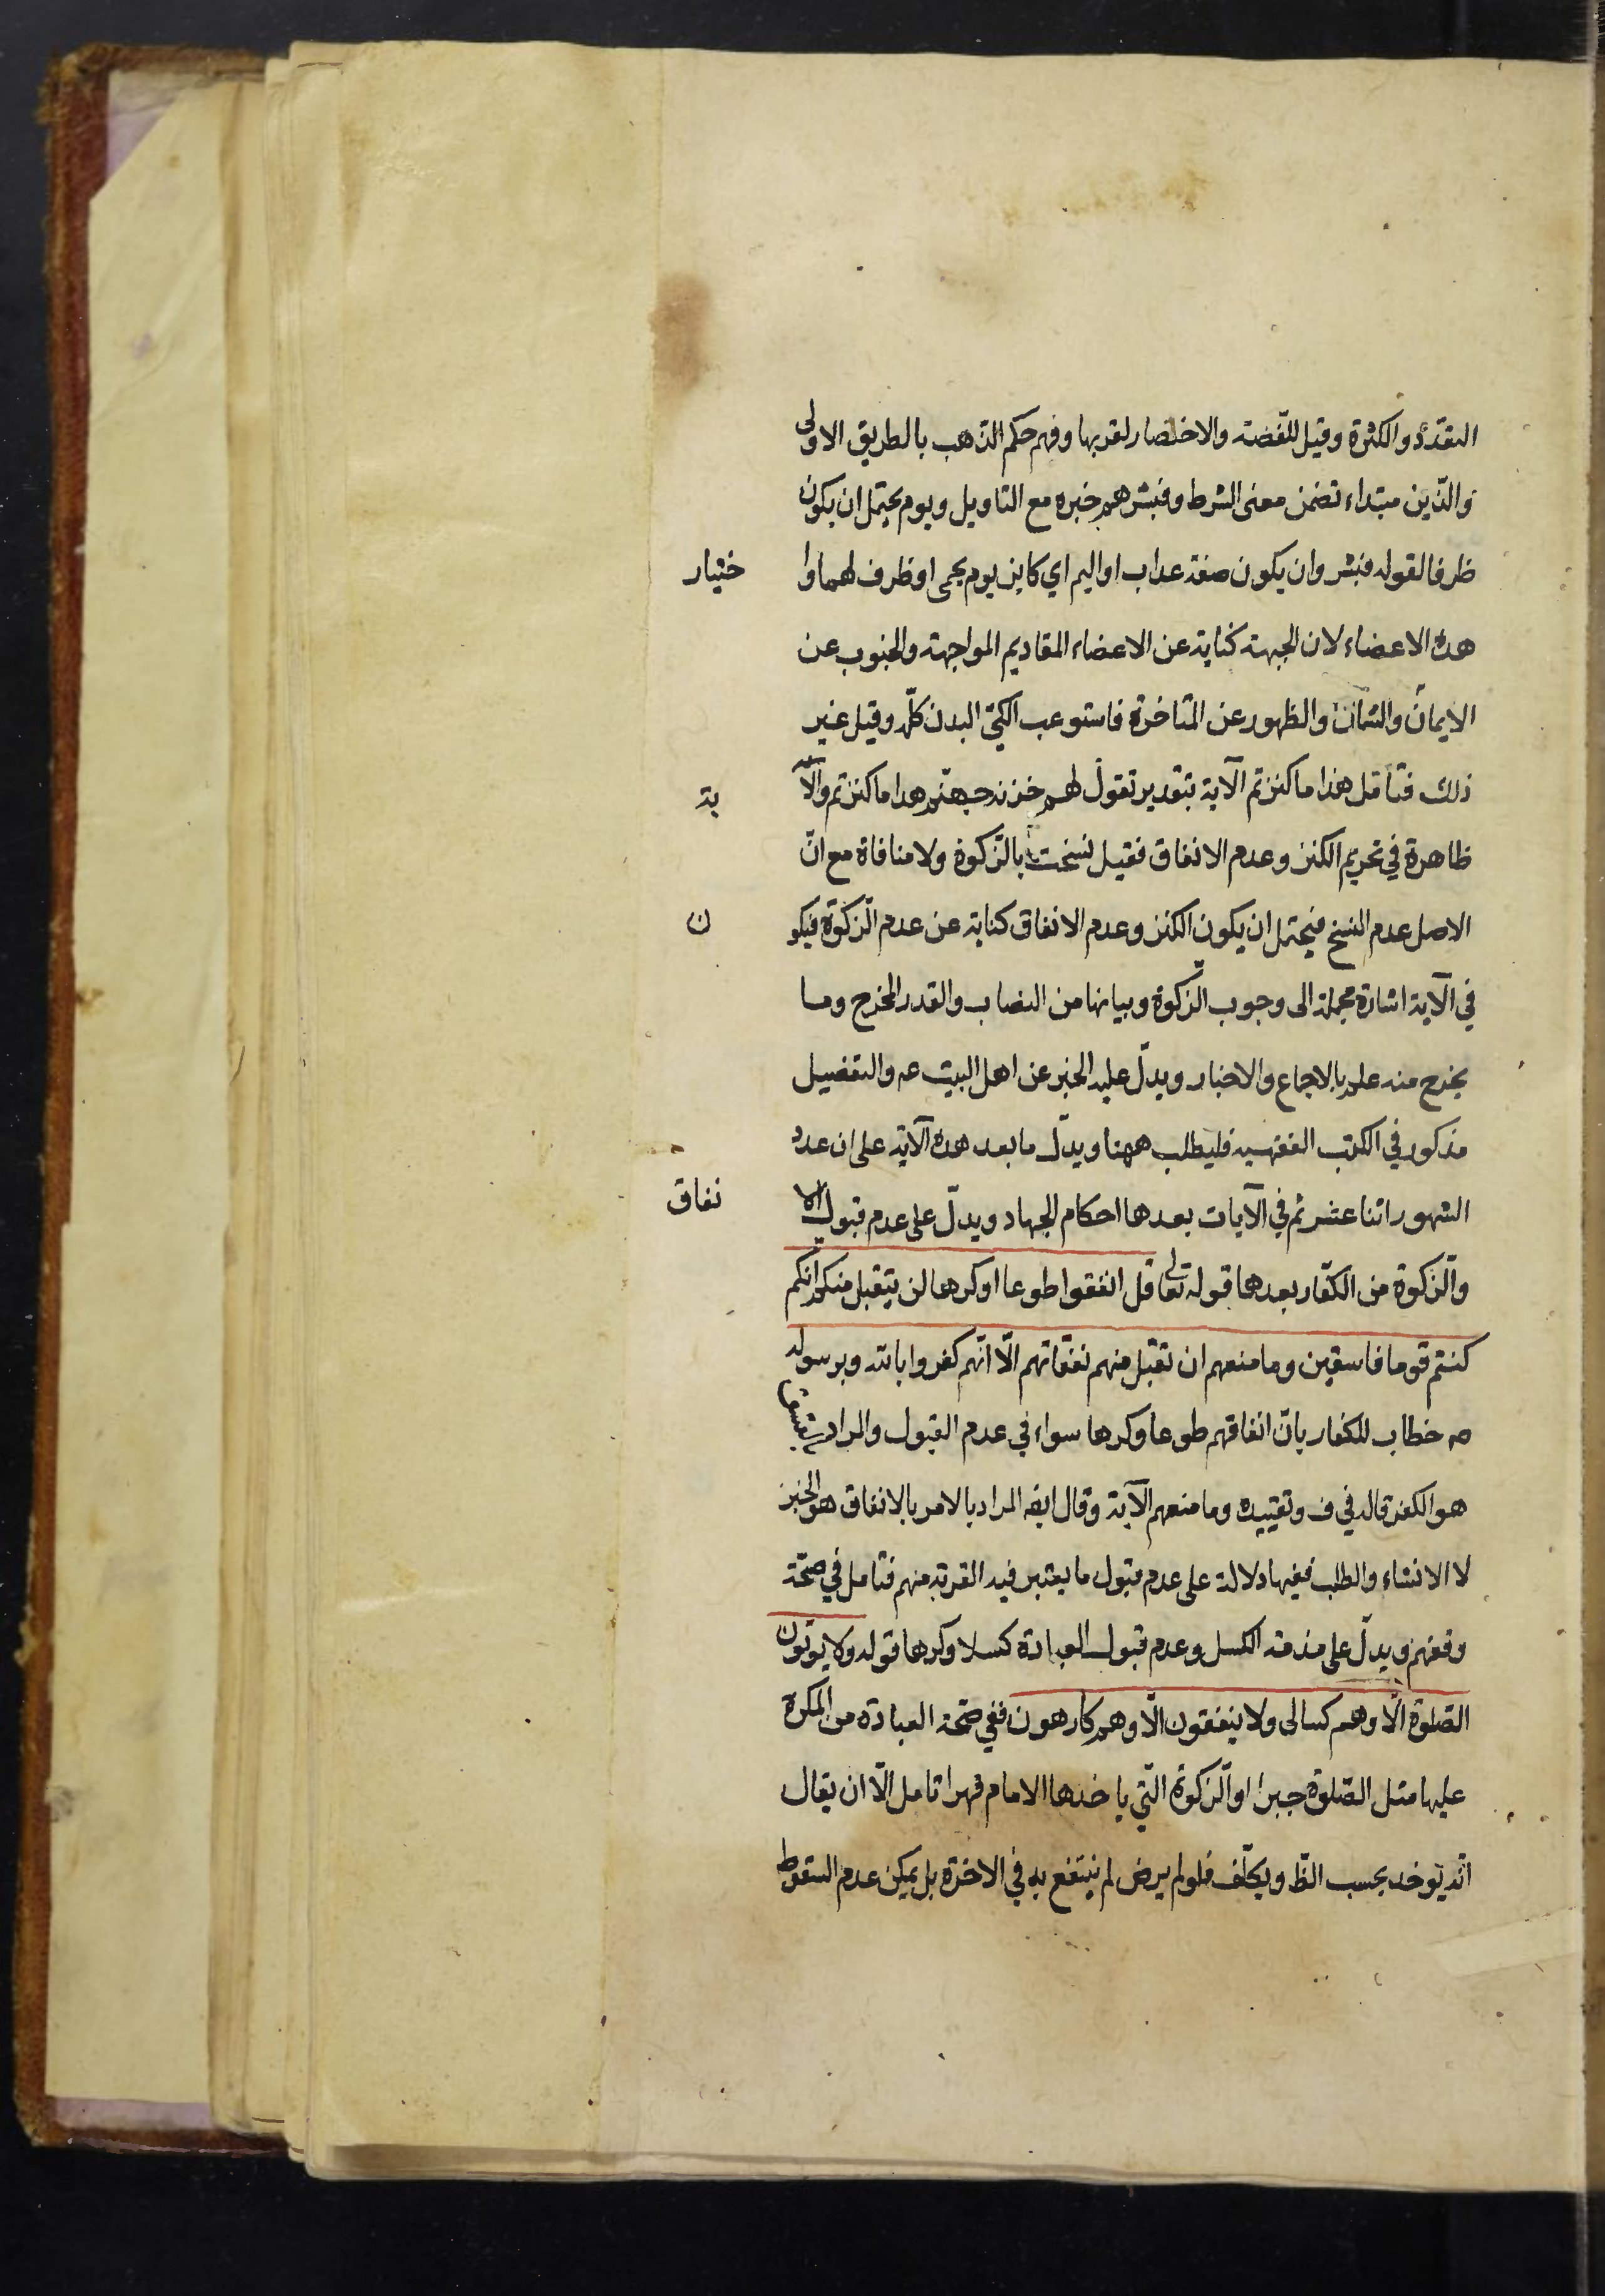 التعدّد والكثرة وقيل للفّضة والاختصار لقربها وفهم حكم الذهب بالطريق الاولى
والّذين مبتداء تضمن معنى الشرط وفبشرهم خبره مع التاويل ويوم يحتمل ان يكون
ظرفا لقوله فبشر وان يكون صفة عذاب او اليم اي كاين يوم يحمى او ظرف لهما وا ختيار
هذه الاعضاء لان الجبهة كناية عن الاعضاء المقاديم المواجهة والجنوب عن
الايمان والشمال والظهور عن المتاخرة فاستوعب الكيّ البدن كلّه وقيل غير
ذلك فتأمّل هذا ما كنزتم الآية بتقدير تقول لهم خزنة جهنّم هذا ما كنزتم والآ ية
ظاهرة في تحريم الكنز وعدم الانفاق فقيل نسخت بالزّكوة ولا منافاة مع انّ
الاصل عدم النسخ فيحتمل ان يكون الكنز وعدم الانفاق كناية عن عدم الزّكوة فيكو ن
في الآية اشارة مجملة الى وجوب الزّكوة وبيانها من النصاب والقدر المخرج وما
يخرج منه علم بالاجماع والاخبار ويدلّ عليه الخبر عن اهل البيت عه والتفضيل
مذكور في الكتب الفقهيه فليطلب ههنا ويدلّ ما بعد هذه الآية على ان عدد
الشهور اثنا عشر ثم في الآيات بعدها احكام الجهاد ويدلّ على عدم قبول الا نفاق
والزّكوة من الكفّار بعدها قوله تعالى قل انفقوا طوعا او كرها لن يتقبل منكم انكم
كنتم قوما فاسقين وما منعهم ان تقبل منهم نفقاتهم الّا انّهم كفروا بالله وبرسوله
صه خطاب للكفار بانّ انفاقهم طوعا وكرها سواء في عدم القبول والمراد بالفسق
هو الكفر قاله في ف وتقييده وما منعهم الآية وقال ايضه المراد بالامر بالانفاق هو الخبر
لا الانشاء والطلب ففيها دلالة على عدم قبول ما يعتبر فيه القربة منهم فتامل في صحّة
وقفهم ويدلّ على مذمة الكسل وعدم قبول العبادة كسلا وكرها قوله ولا يوتون
الصّلوة الّا وهم كسالى ولا ينفقون الّا وهم كارهون ففي صحّة العبادة من المكره
عليها مثل الصّلوة جبرا او الزّكوة الّتي ياخذها الامام قهرا تامل الّا ان يقال
انّه يؤخذ بحسب الظّ ويكلّف فلو لم يرض لم ينتفع به في الاخرة بل يمكن عدم السقوط